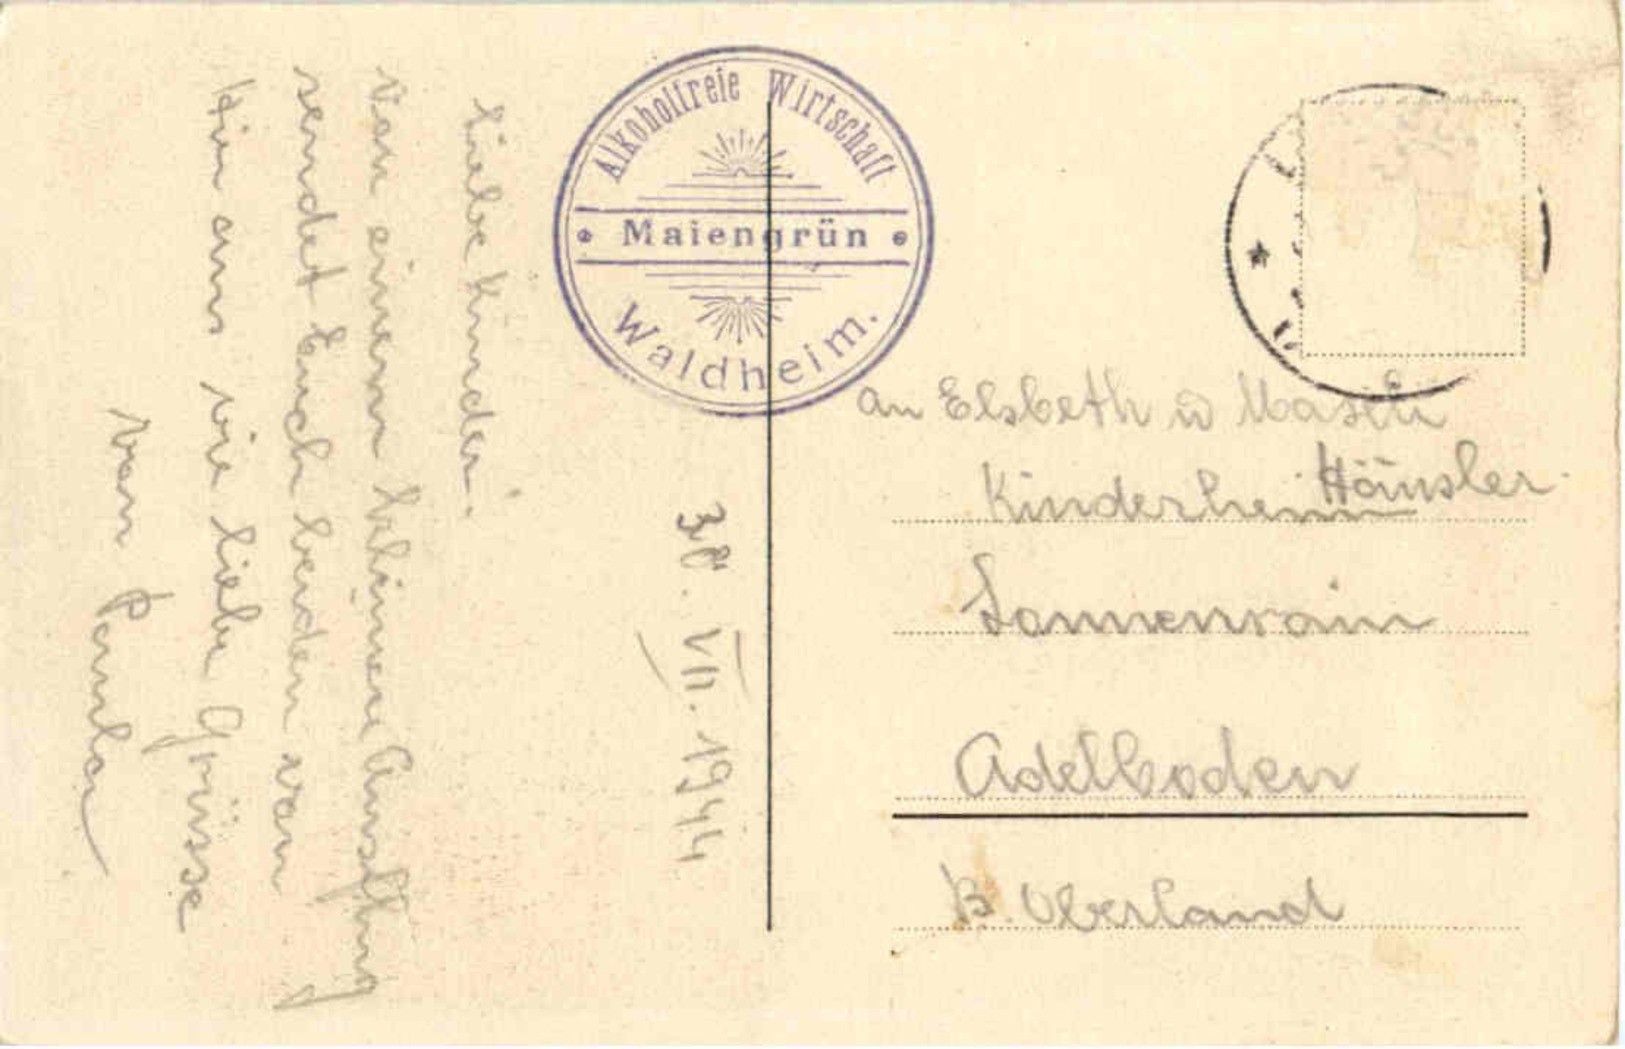 30. VII. 1944
Liebe Kinder.
Von einem kleinen Ausflug
sendet Euch beiden von
hir aus vie liebe Grüsse
von Paula
Alkoholfreie Wirtschaft
Maiengrün
Waldheim.
an Elsbeth u
Häusler
Kinderheim
Sonnenrain
Adelboden
B. Oberland